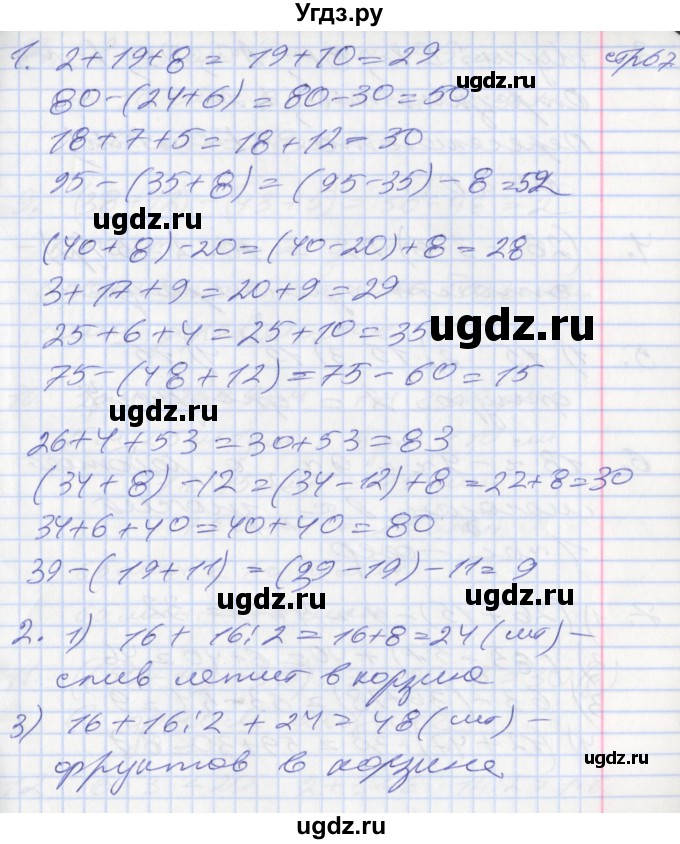 Угдз.ру
1. 2+19+8 = 19+10=29 стр67
80-(24+6) = 80-30=50
18+7+5=18+12=30
95-(35+8)=(95-35)-8=52
ugdz.ru
(40+8)-20=(40-20)+8=28
3+17+9=20+9=29
25+6+4=25+10=35
ugdz.ru
75-(48+12)=75-60=15
ugdz.ru
26+4+53=30+53=83
(34+8)-12=(34-12)+8=22+8=30
34+6+40=40+40=80
39-(19+11)=(39-19)-11=9
ugdz.ru
ugdz.ru
2. 1) 16+16:2=16+8=24(шт)-
слив лежит в корзине
3) 16+16:2+24=48(шт)-
фруктов в корзине
ugdz.ru
ugdz.ru